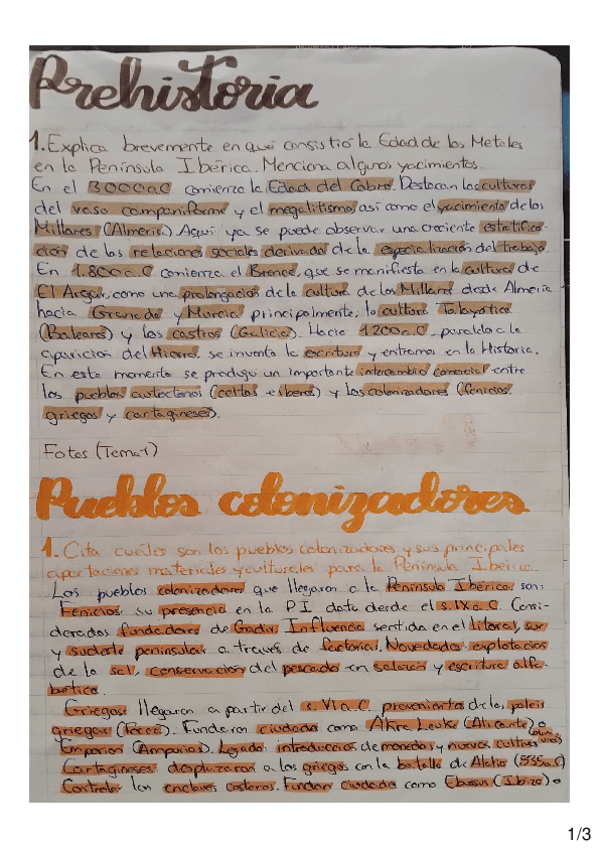 Prehistoria
1. Explica brevemente en qué consistió la Edad de los Metales
en la Península Ibérica. Menciona algunos yacimientos.
En el 3000a.C comienza la Edad del Cobre. Destacan las culturas
del vaso campaniforme y el megalitismo, así como el yacimiento de los
Millares (Almería). Aquí ya se puede observar una creciente estratifica-
ción de las relaciones sociales derivada de la especialización del trabajo.
En 1.800a.C comienza el Bronce, que se manifiesta en la cultura de
El Argar, como una prolongación de la cultura de los Millares desde Almería
hacia Granada y Murcia principalmente, la cultura Talayótica
(Baleares) y los castros (Galicia). Hacia 1200a.C, paralelo a la
aparición del Hierro, se inventa la escritura y entramos en la Historia.
En este momento se produjo un importante intercambio comercial entre
los pueblos autóctonos (celtas e íberos) y los colonizadores (fenicios,
griegos y cartagineses).
Fotos (Tema 1)
Pueblos colonizadores
1. Cita cuáles son los pueblos colonizadores y sus principales
aportaciones materiales y culturales para la Península Ibérica.
Los pueblos colonizadores que llegaron a la Península Ibérica son:
Fenicios: su presencia en la PI data desde el s.IX a.C. Consi-
derados fundadores de Gadir. Influencia sentida en el litoral, sur
y sudeste peninsular a través de factorías. Novedades: explotación
de la sal, conservación del pescado en salazón y escritura alfa-
bética.
Griegos: llegaron a partir del s.VI a.C. provenientes de la polis
griegas (Focea). Fundaron ciudades como Akra Leuke (Alicante) o
Emporion (Ampurias). Legado: introducción de monedas y nuevos cultivos
Cartagineses: desplazaron a los griegos con la batalla de Alalia (535a.C)
Controlan los enclaves costeros. Fundan ciudades como Ebussus (Ibiza) o
1/3